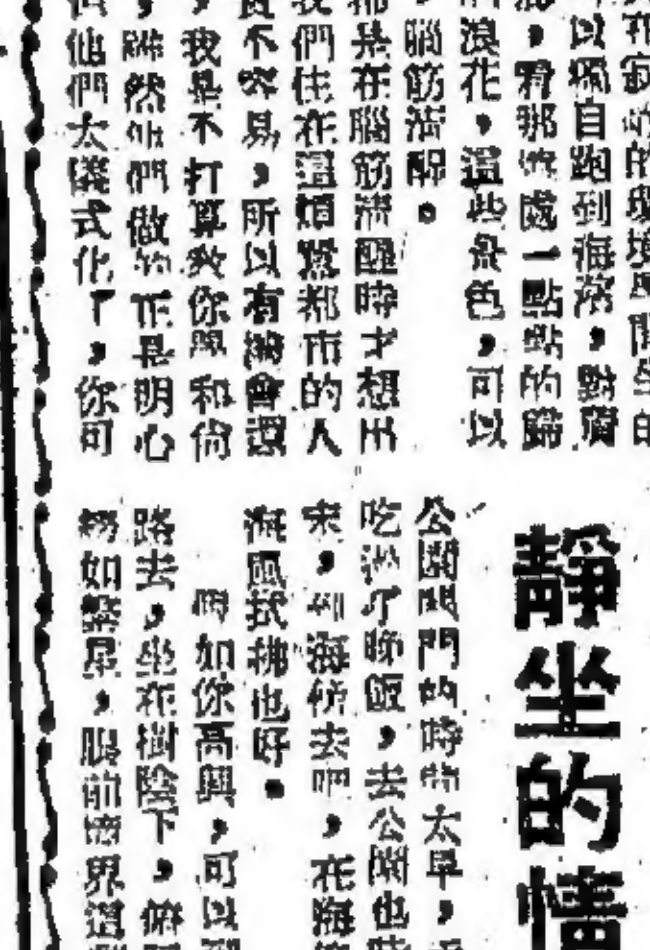 在寂的的環境
以獨自跑到海旁，對
，看那處一點點的歸
浪花，這些景色，可以
腦筋清醒。
是在腦筋清醒時才想出
們住在這煩囂都市的人
不容易，所以有機會還
，我是不打算教你學和尚
，雖然他們做的正是明心
他們太儀式化了，你可
靜坐的情
公園關門的時太早，
吃過了晚飯，去公園也
來，到海傍去吧，在海
海風拭拂也好。
假如你高興，可以
路去，坐在樹陰下，俯
如繁星，眼前境界這